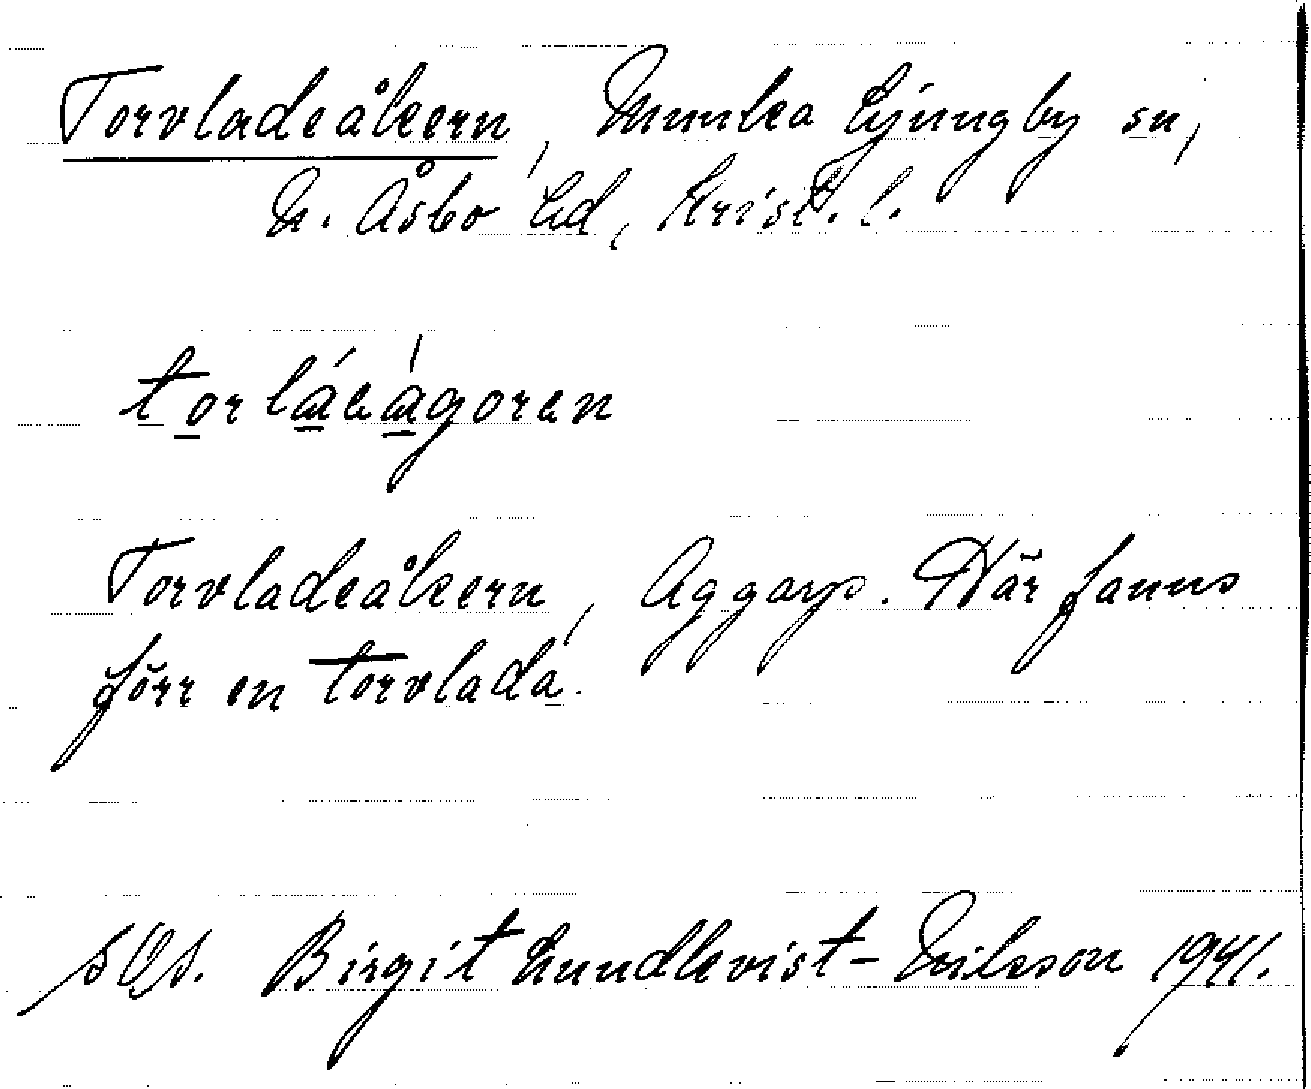 Torvladeåkern, Munka Ljungby sn,
N. Åsbo hd, Krist. l.
torláeágoren
Torvladeåkern, Aggarp. Där fanns
förr en torvlada.
Birgit Lundkvist-Nilsson 1941.